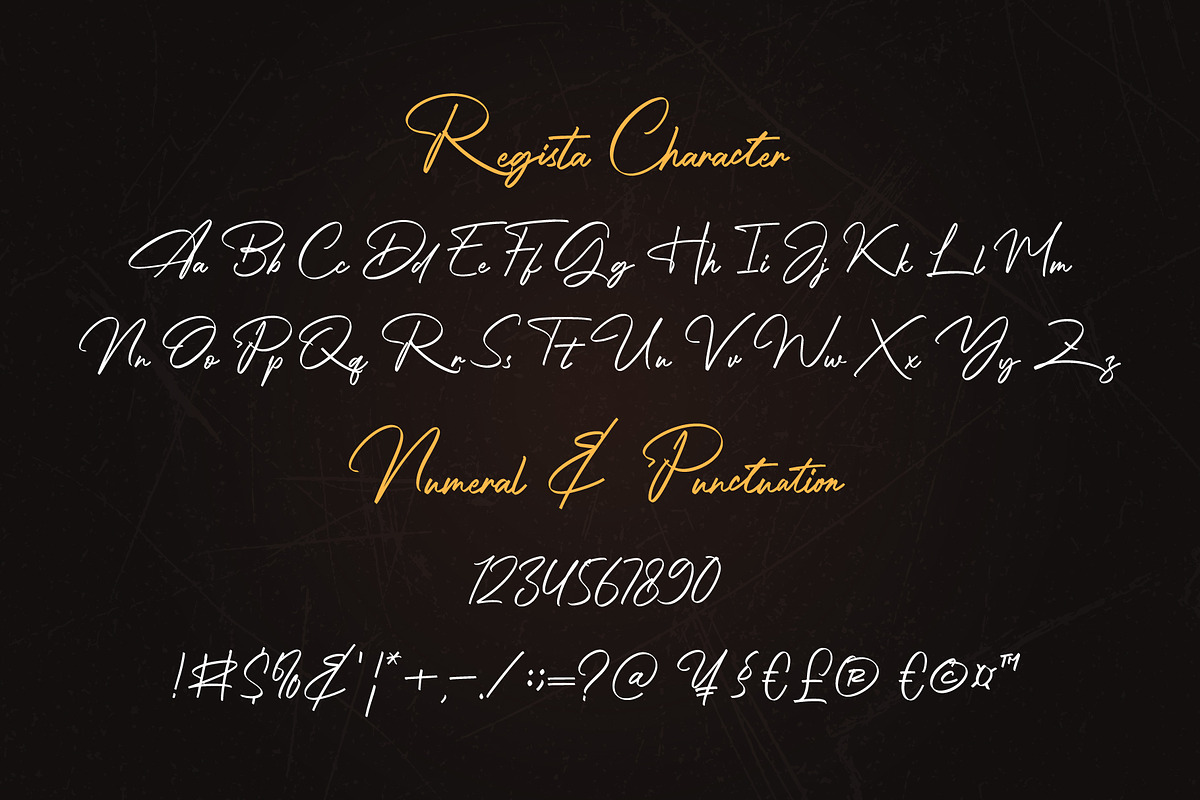 Regista Character
Aa Bb Cc Dd Ee Ff Gg Hh Ii Jj Kk Ll Mm
Nn Oo Pp Qq Rr Ss Tt Uu Vv Ww Xx Yy Zz
Numeral & Punctuation
1234567890
!#$%&'¦*+,-./:;=?@ ¥§€£® €©¤™